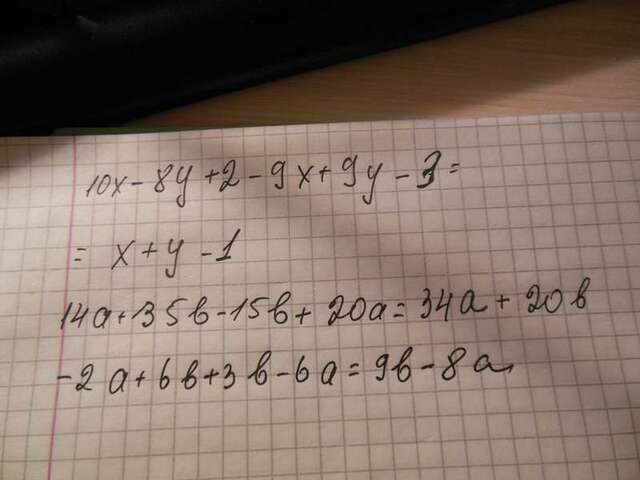 10x-8y+2-9x+9y-3=
= x+y-1
14a+35b-15b+20a=34a+20b
-2a+6b+3b-6a=9b-8a